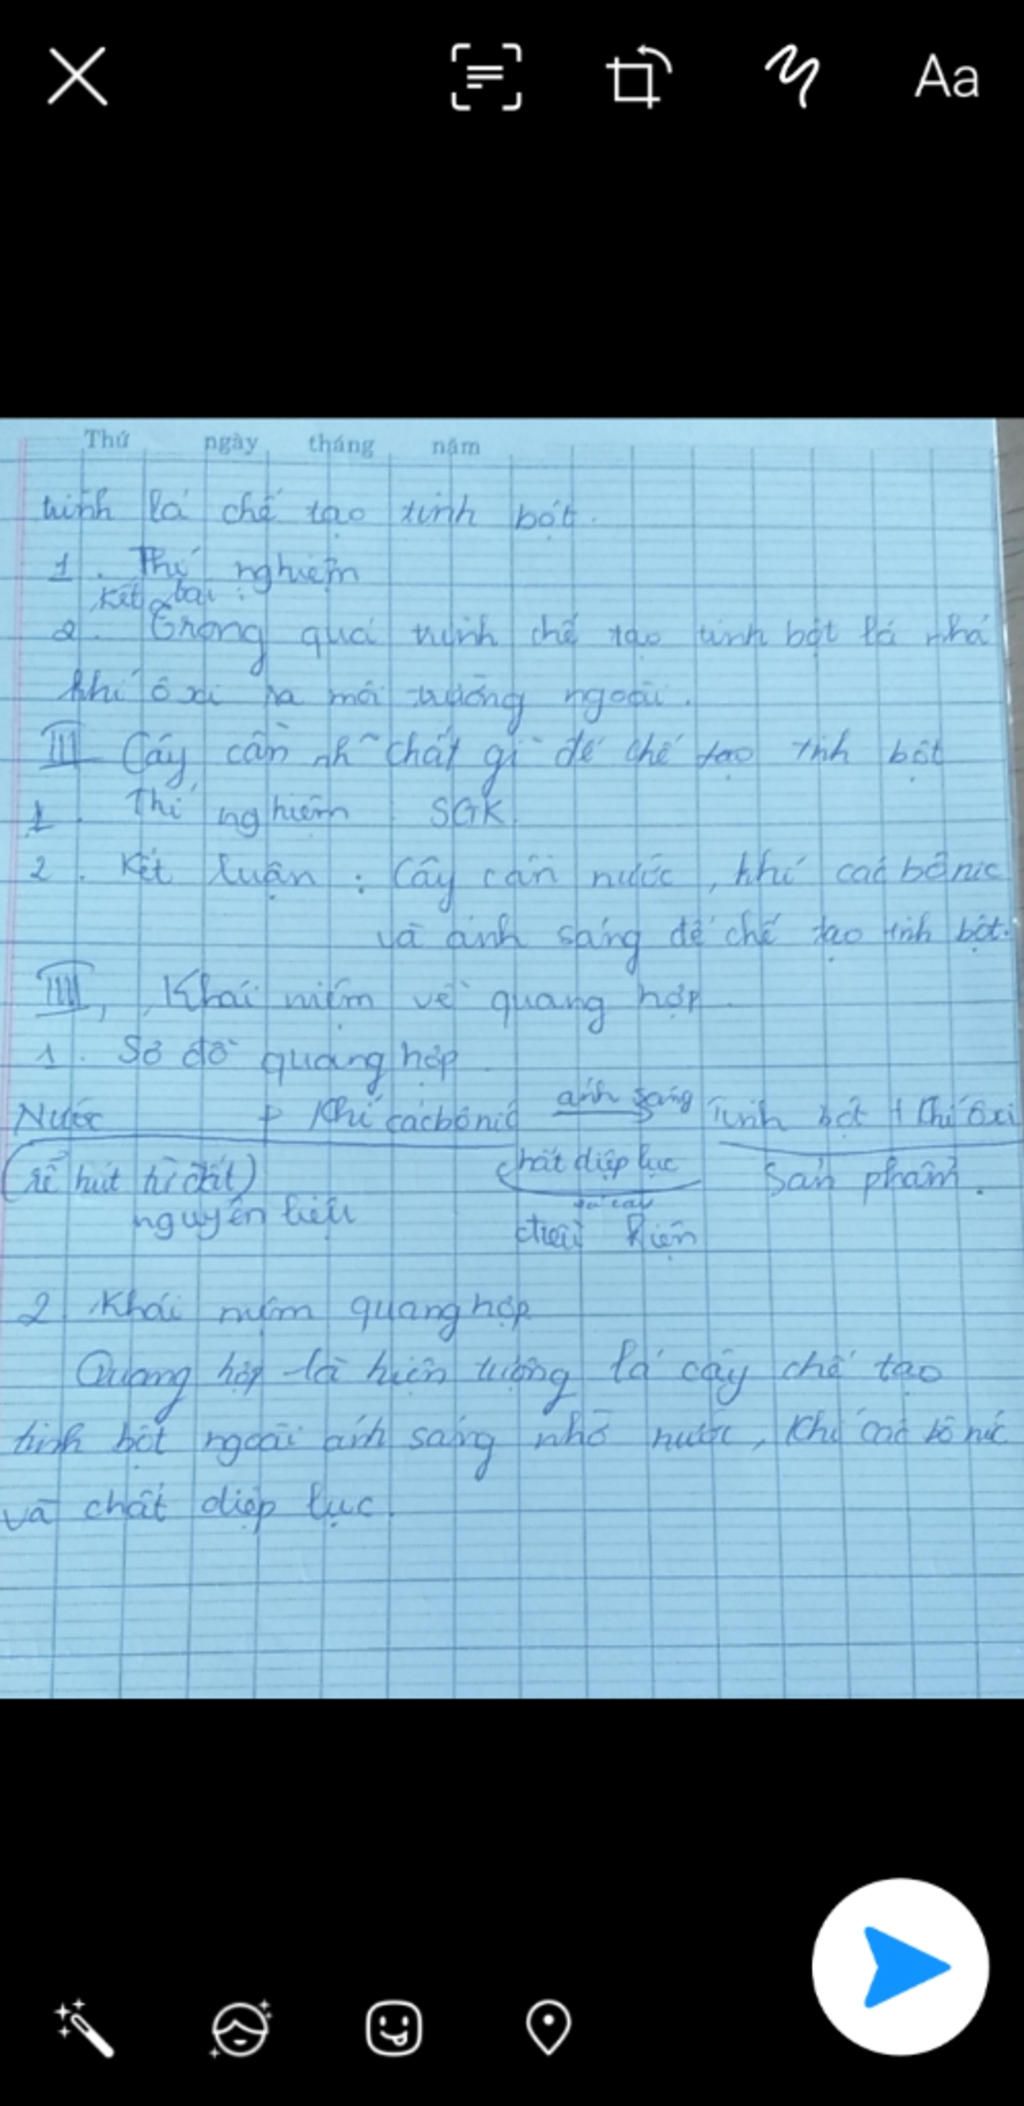 Aa
Thứ ngày tháng năm
trình lá chế tạo tinh bột.
1. Thí nghiệm
Kết
2. Trong quá trình chế tạo tinh bột lá nhả
khí ôxi ra môi trường ngoài.
III Cây cần nh~ chất gì để chế tạo tinh bột
1. Thí nghiệm SGK
2. Kết luận : Cây cần nước, khí cácbônic
và ánh sáng để chế tạo tinh bột.
IIII, Khái niệm về quang hợp.
1. Sơ đồ quang hợp
Nước + Khí cácbônic ánh sáng Tinh bột + Khí ôxi
(rễ hút từ đất) chất diệp lục Sản phẩm.
nguyên liệu điều kiện
2. Khái niệm quang hợp
Quang hợp là hiện tượng lá cây chế tạo
tinh bột ngoài ánh sáng nhờ nước, khí các bô níc
và chất diệp lục.